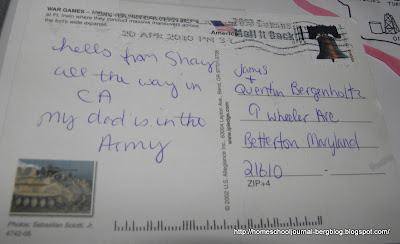 WAR GAMES
at Ft. Irwin where they conduct massive maneuvers across
the fort's wide expanse.
20 APR 2010 PM
America
Mail It Back
hello from Shay
all the way in
CA
my dad is in the
Army
James
+
Quentin Bergenholtz
9 Wheeler Ave
Betterton Maryland
21610 -
ZIP+4
Photos, Sebastian Scotti, Jr.
4742-05
http://homeschooljournal-bergblog.blogspot.com/